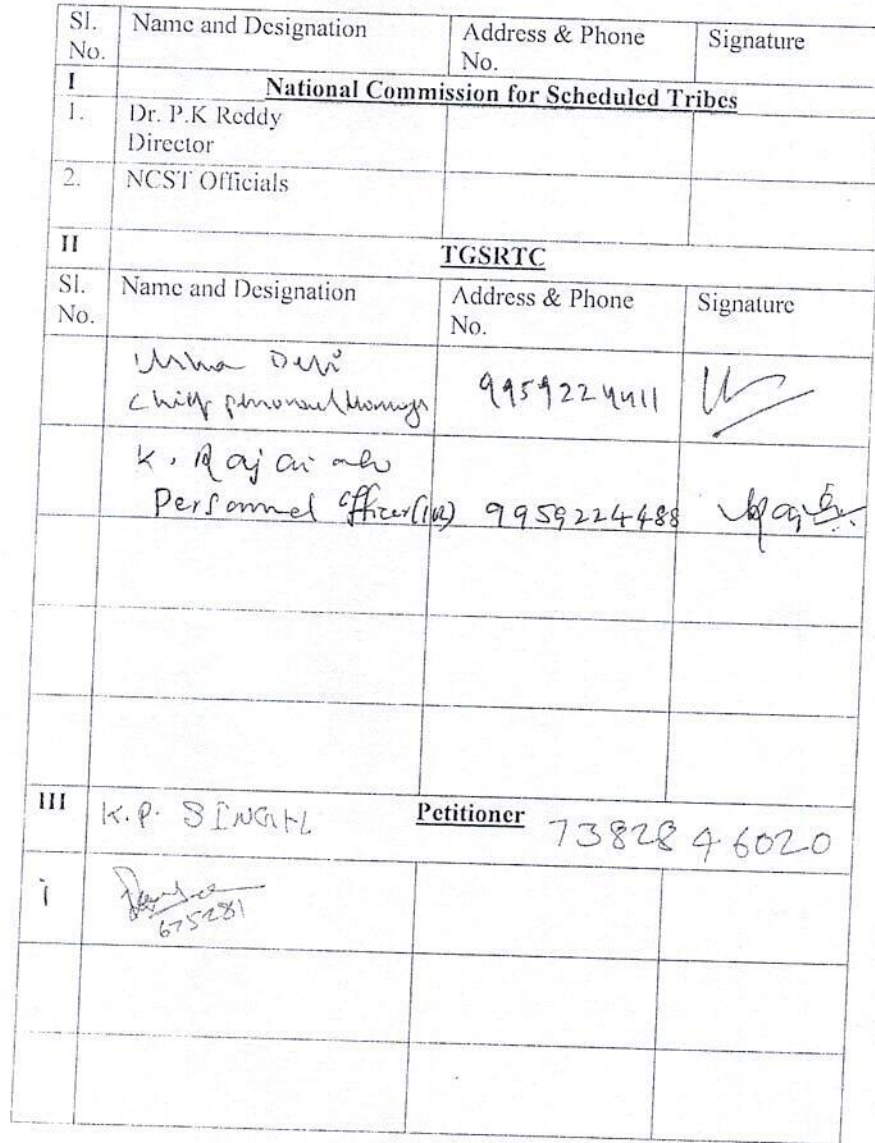 Sl. No. Name and Designation Address & Phone No. Signature
I National Commission for Scheduled Tribes
1. Dr. P.K Reddy
Director
2. NCST Officials
II TGSRTC
Sl. No. Name and Designation Address & Phone No. Signature
Usha Devi
Chief personnel Manager 9959224411
K. Rajaiah
Personnel Officer(IR) 9959224488
III K.P. SINGH Petitioner 7382846020
i
675281